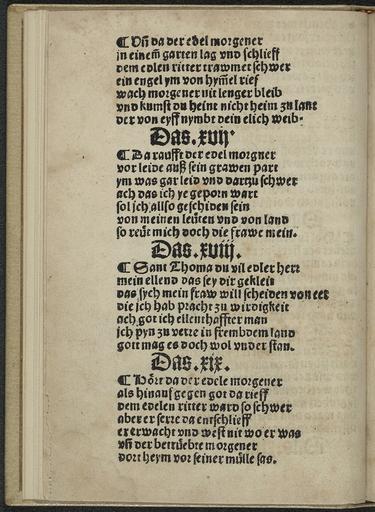 ¶ Vñ da der edel morgener
in einem̃ garten lag vnd schlieff
dem edlen ritter trawmet schwer
ein engel ym von hym̃el rief
wach morgener nit lenger bleib
vnd kumst du heint nicht heim zu lant
der von eyff nymbt dein elich weib·
Das.xvij·
¶ Da raufft der edel morgner
vor leide auß sein grawen part
ym was gar leid vnd dartzu schwer
ach das ich ye geporn wart
sol ich allso geschiden sein
von meinen leüten vnd von land
so reüt mich doch die frawe mein.
Das.xviij.
¶ Sant Thoma du vil edler herr
mein ellend das sey dir gekleit
das sych mein fraw will scheiden von eer
die ich hab pracht zu wirdigkeit
ach got ich ellenthaffter man
jch pyn zu verre in frembdem land
gott mag es doch wol vnder stan.
Das.xix.
¶ Hört da der edele morgener
als hinauf gegen got da rieff
dem edelen ritter ward so schwer
aber er serre da entschlieff
er erwacht vnd west nit wo er was
vñ der betrüebte morgener
dort heym vor seiner mülle sas.